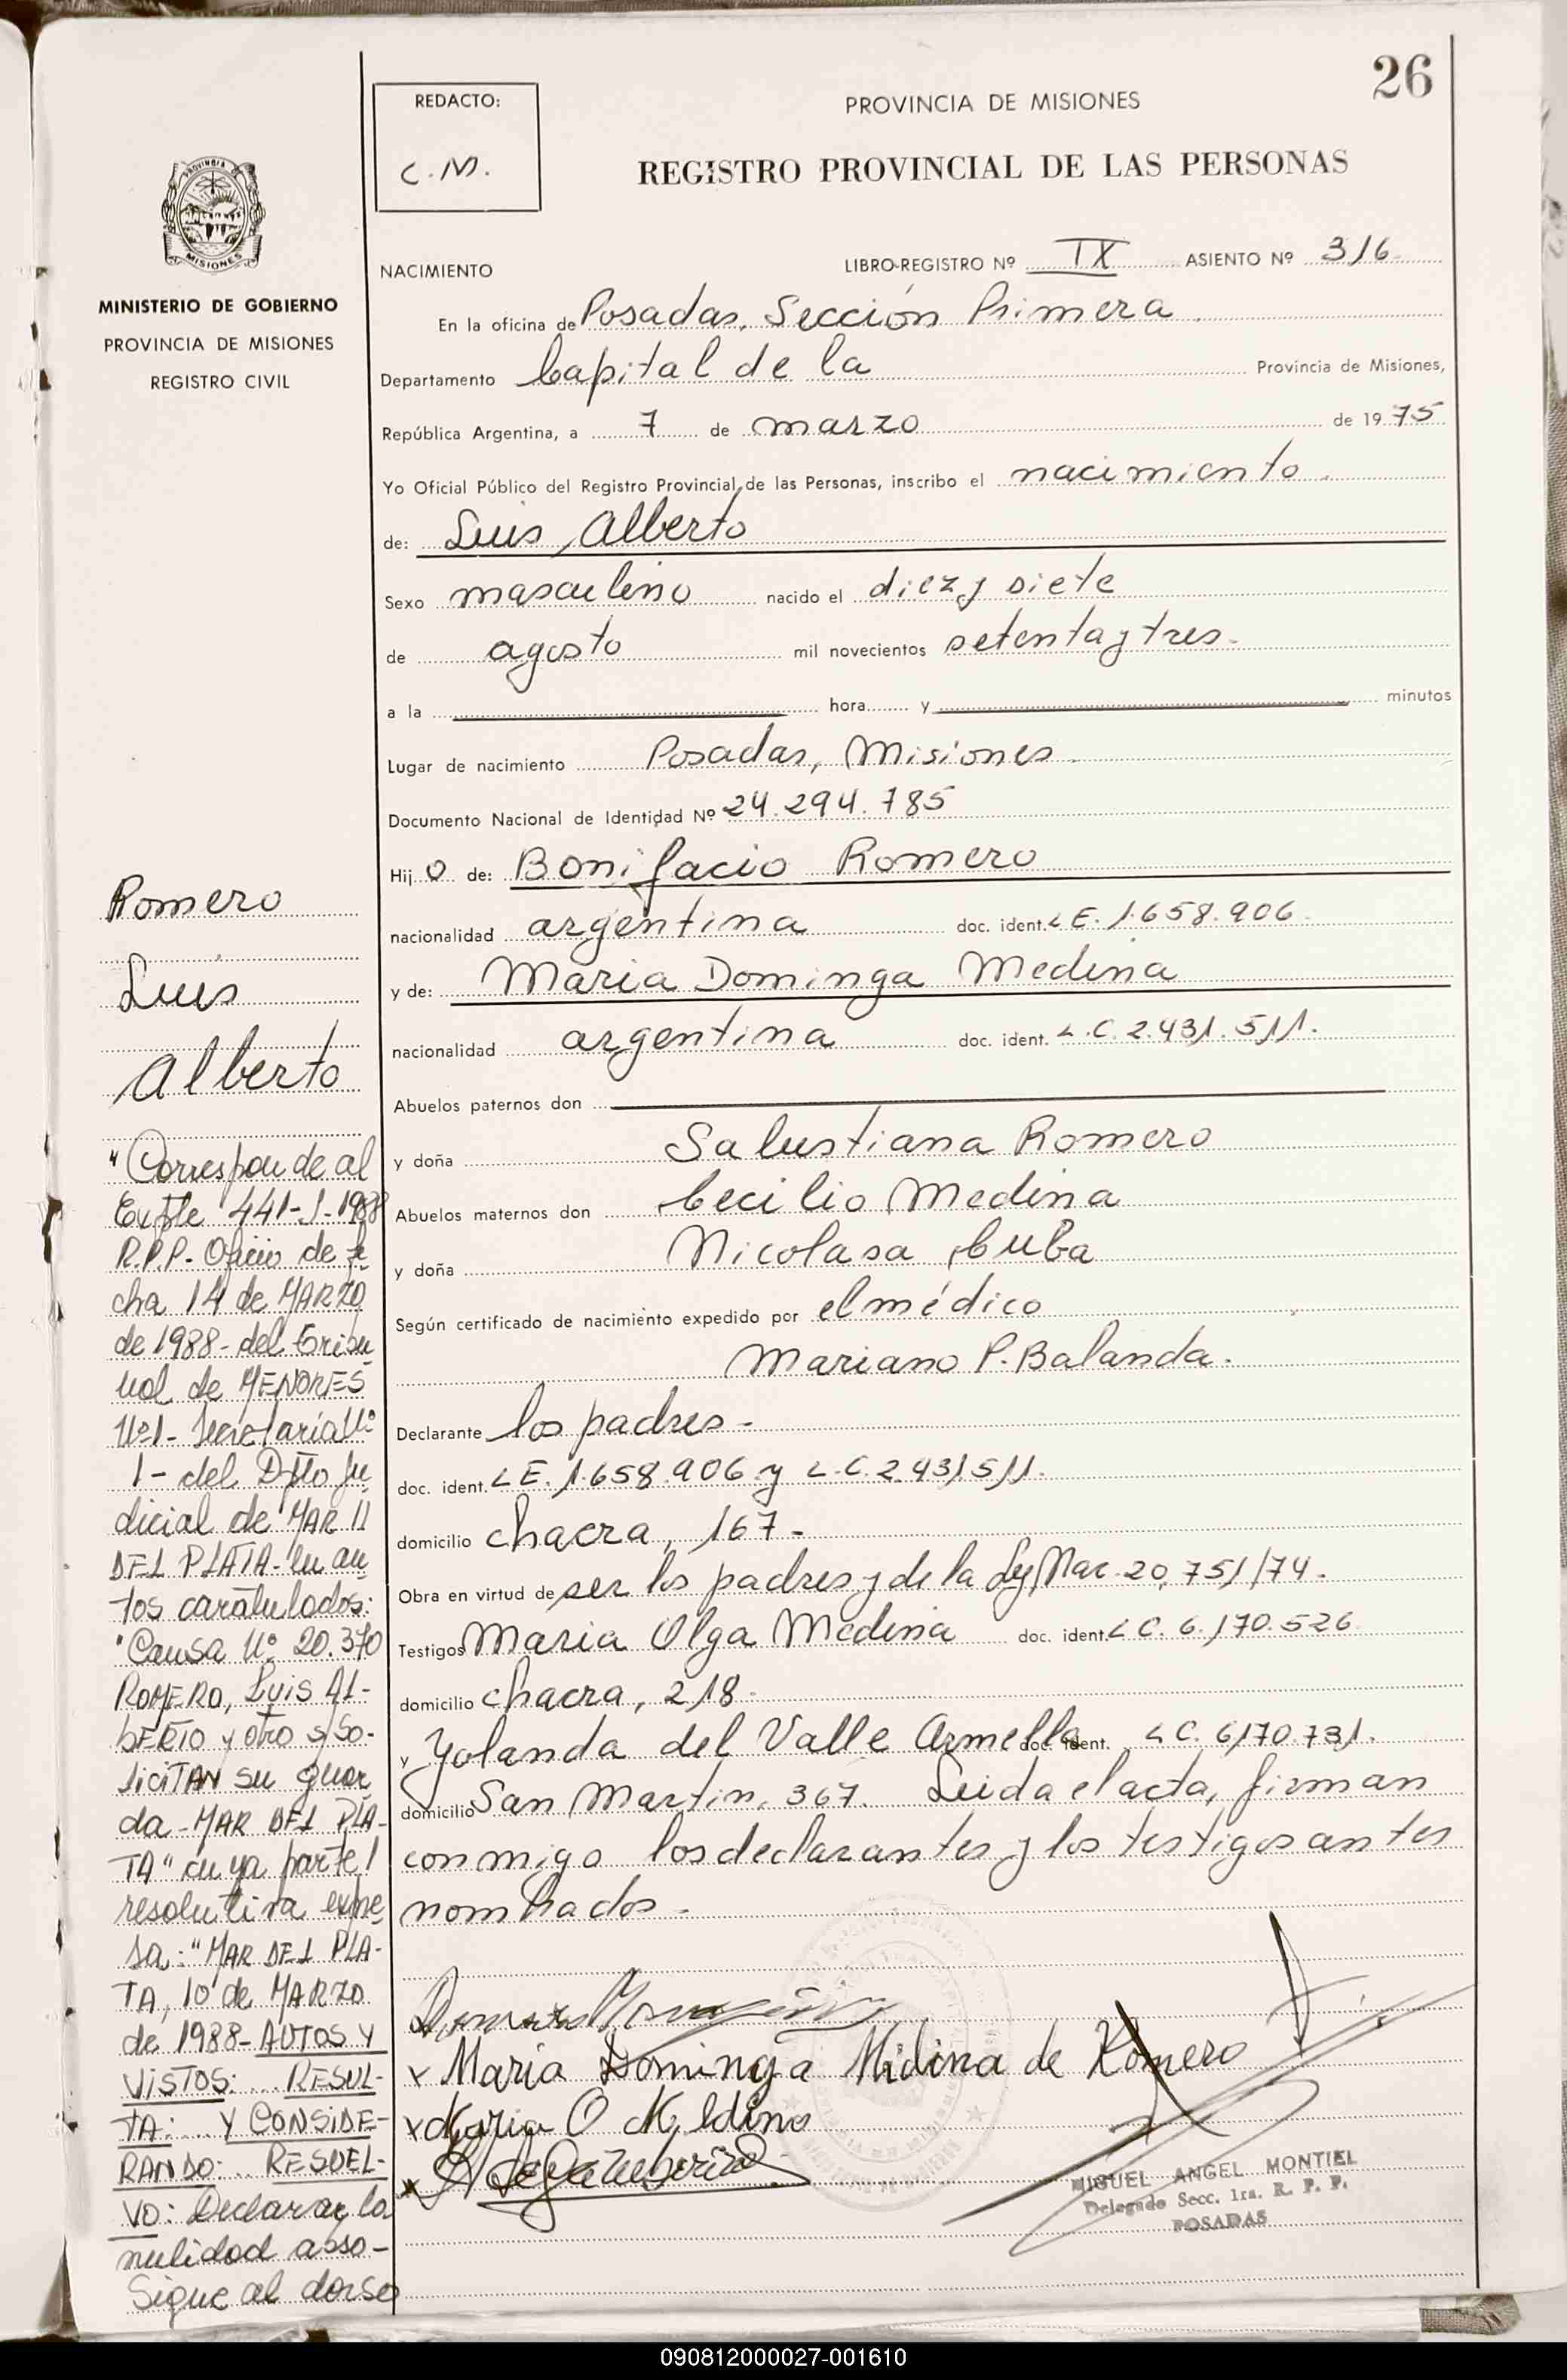 26
REDACTO:
C.M.
PROVINCIA DE MISIONES
REGISTRO PROVINCIAL DE LAS PERSONAS
PROVINCIA
MISIONES
MINISTERIO DE GOBIERNO
PROVINCIA DE MISIONES
REGISTRO CIVIL
NACIMIENTO LIBRO-REGISTRO Nº IX ASIENTO Nº 316
En la oficina de Posadas, Sección Primera
Departamento Capital de la Provincia de Misiones,
República Argentina, a 7 de marzo de 1975
Yo Oficial Público del Registro Provincial de las Personas, inscribo el nacimiento
de: Luis Alberto
Sexo masculino nacido el diez y siete
de agosto mil novecientos setenta y tres-
a la hora y minutos
Lugar de nacimiento Posadas, Misiones
Documento Nacional de Identidad Nº 24.294.785
Hij o de: Bonifacio Romero
nacionalidad argentina doc. ident. L E. 1.658.906
y de: Maria Dominga Medina
nacionalidad argentina doc. ident. L.C. 2.431.511.
Abuelos paternos don
y doña Salustiana Romero
Abuelos maternos don Cecilio Medina
y doña Nicolasa Cuba
Según certificado de nacimiento expedido por el médico
Mariano P. Balanda.
Declarante los padres-
doc. ident. L E. 1.658.906 y L.C. 2.431511.
domicilio chacra, 167-
Obra en virtud de ser los padres y de la Ley Nac. 20.751/74.
Testigos Maria Olga Medina doc. ident. L C. 6.170.526
domicilio chacra, 218.
y Yolanda del Valle Armella doc. ident. L C. 6170.731.
domicilio San Martin, 367. Leida el acta, firman
conmigo los declarantes y los testigos antes
nombrados-
x Maria Dominga Midina de Romero
x Maria O Medina
MIGUEL ANGEL MONTIEL
Delegado Secc. 1ra. R. P. P.
POSADAS
Romero
Luis
Alberto
"Corresponde al
Expte 441-J-1988
R.P.P. Oficio de fe
cha 14 de MARZO
de 1988- del Tribu
nal de MENORES
Nº1- Secretaria Nº
1- del Dpto Ju
dicial de MAR
DEL PLATA- en au
tos caratulados:
"Causa Nº 20.370
ROMERO, Luis AL-
BERTO y otro s/ So-
liciTAN su guar
da-MAR DEL PLA-
TA" cuya parte
resolutiva expre
sa: "MAR DEL PLA-
TA, 10 de MARZO
de 1988- AUTOS Y
VISTOS:... RESUL-
TA:... Y CONSIDE-
RANDO:.. RESUEL-
VO: Declarar la
nulidad abso-
Sigue al dorso
090812000027-001610